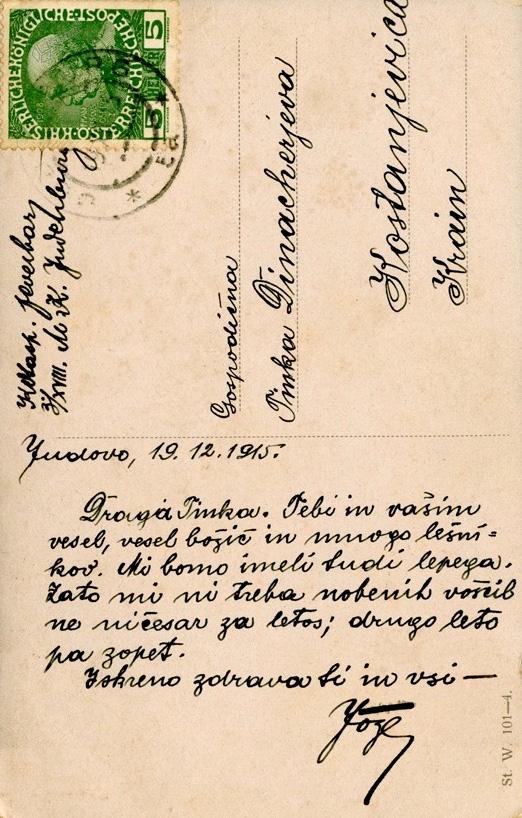 KAISERLICHE KÖNIGLICHE POST
5 HELLER 5
K·K·ÖSTERREICHISCHE
Judenburg
Gospodična
Tinka Dinacherjeva
Kostanjevica
Krain
Judovo, 19.12.1915.
Draga Tinka. Tebi in vašim
vesel, vesel božič in mnogo lešni=
kov. Mi bomo imeli tudi lepega.
Zato mi ni treba nobenih voščil
ne ničesar za letos; drugo leto
pa zopet.
Iskreno zdrava ti in vsi —
Jože
St. W. 101—4.